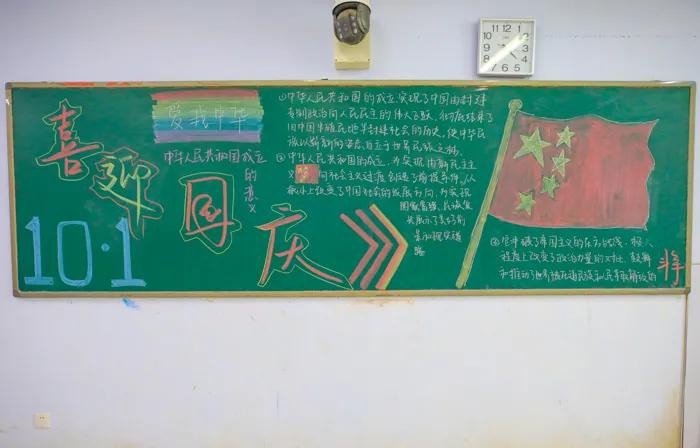 喜迎国庆
10·1
爱我中华
中华人民共和国成立
的意义
①中华人民共和国的成立,实现了中国由封建
专制政治向人民民主的伟大飞跃,彻底结束了
旧中国半殖民地半封建社会的历史,使中华民
族以崭新的姿态自立于世界民族之林。
②中华人民共和国的成立,为实现由新民主主
义向社会主义过渡创造了前提条件,从
根本上改变了中国社会的发展方向,为实现
国家富强、民族复
兴展示了美好前
景和现实道
路
③它冲破了帝国主义的东方战线,极大
程度上改变了政治力量的对比,鼓舞
和推动了世界被压迫民族和人民争取解放的
斗争